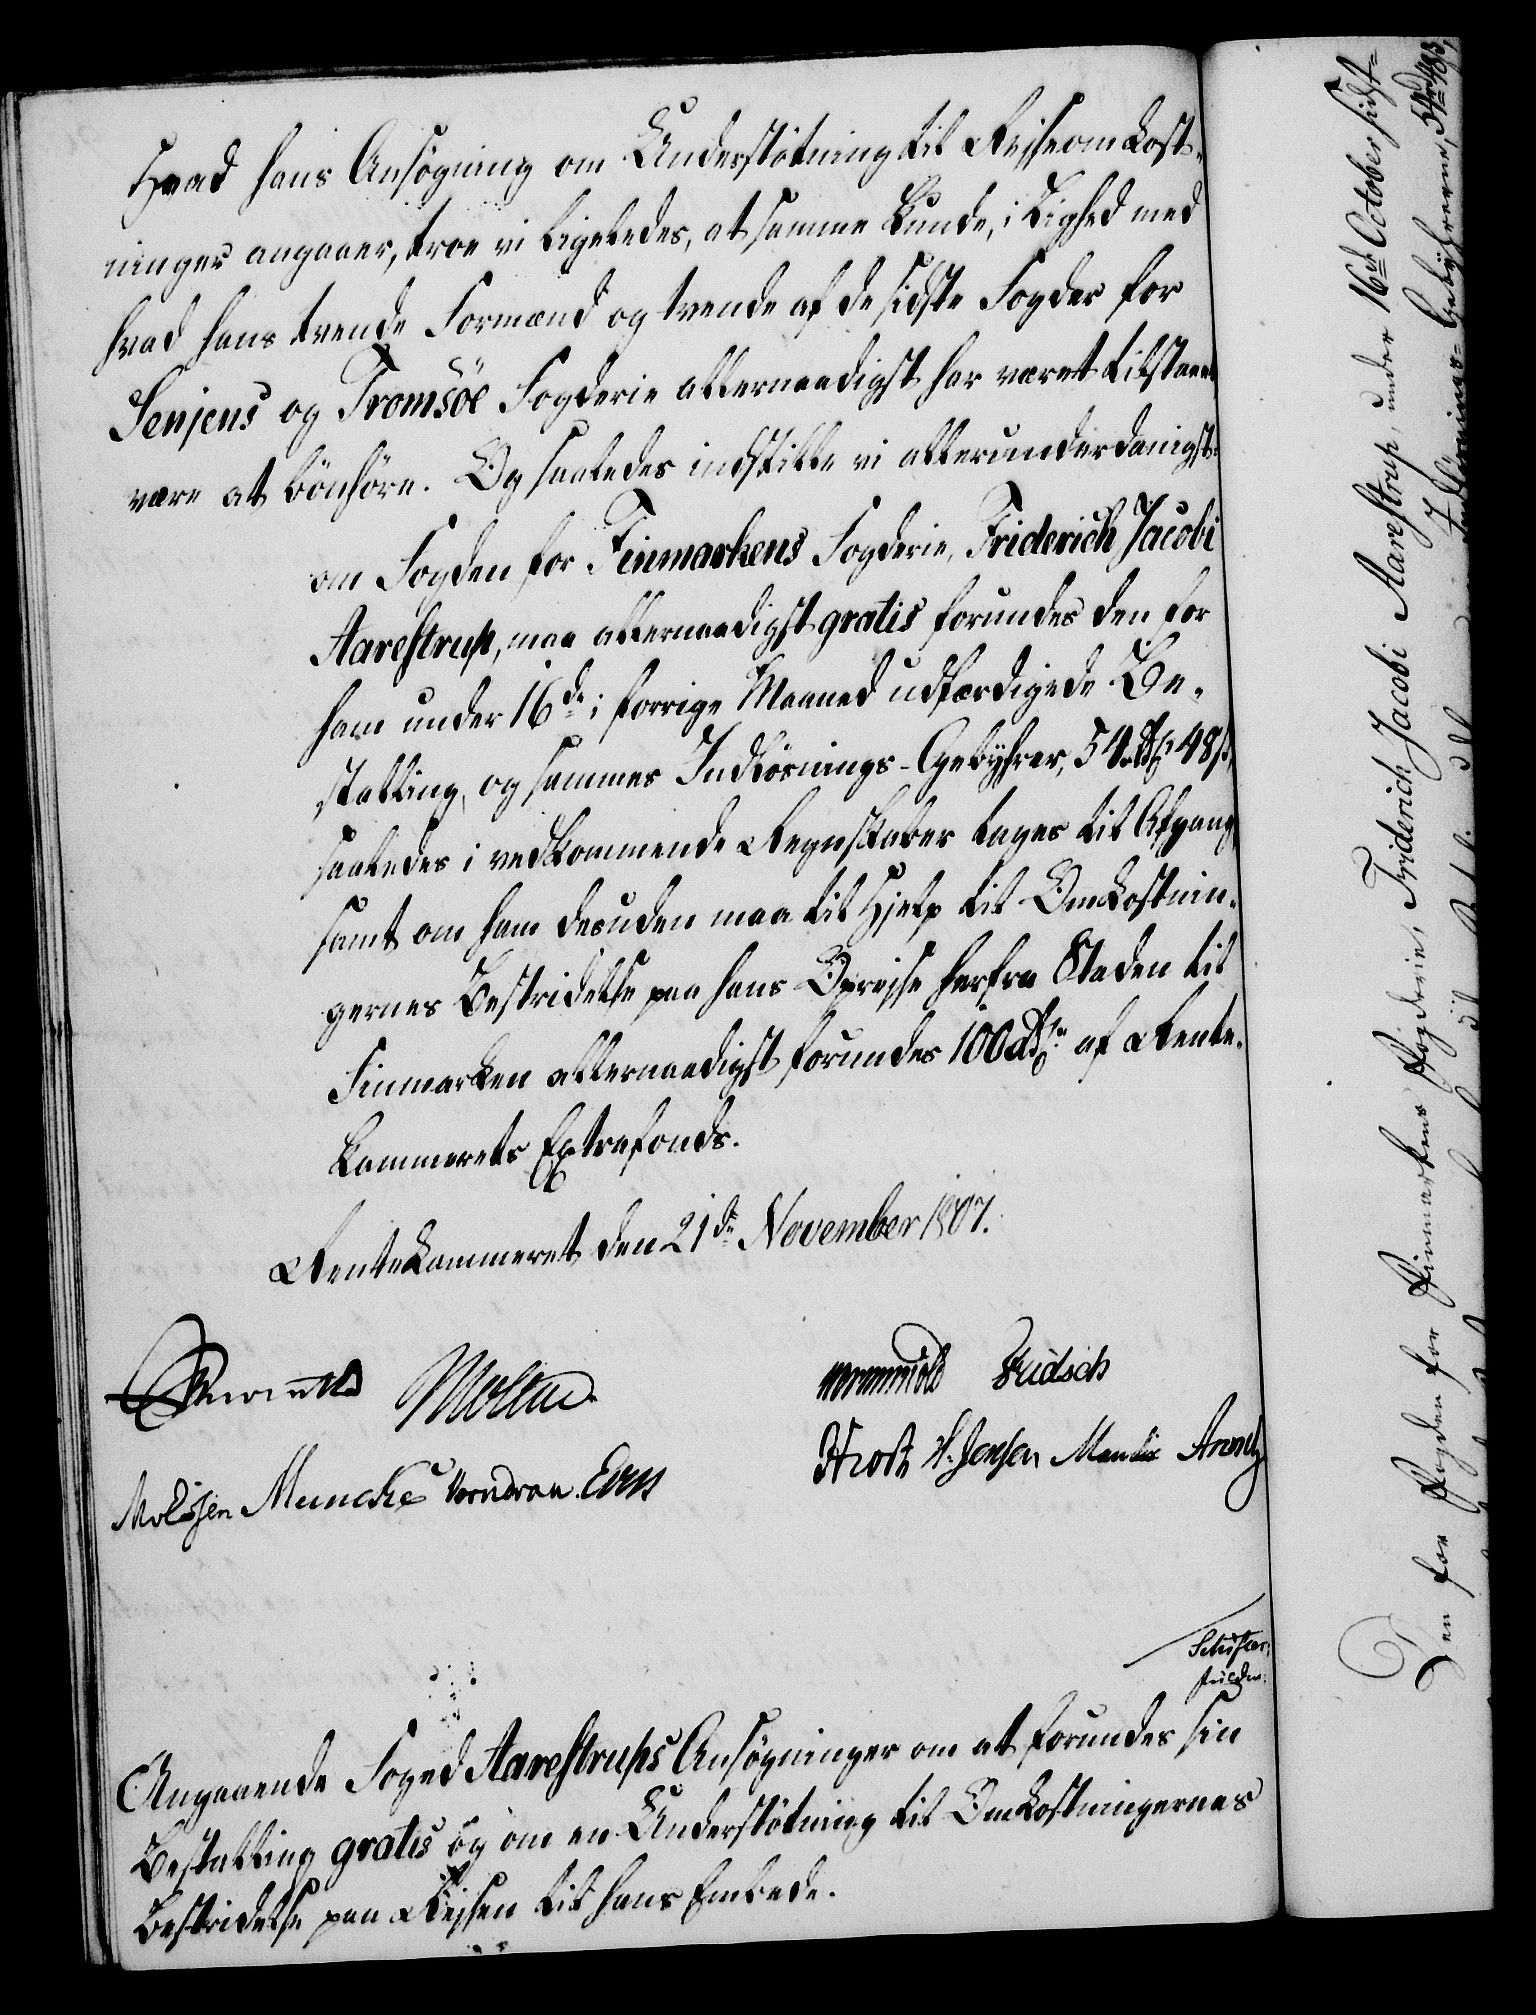 Hvad hans Ansøgning om Understøtning til Reiseomkost-
ninger angaaer, troe vi ligeledes, at samme kunde, i Lighed med
hvad hans trende Formænd og trende af de sidste Fogder for
Senjens og Tromsöe Fogderie allernaadigst har været tilstaaet
være at bönhöre. Og saaledes indstille vi allerunderdanigst:
om Fogden for Finmarkens Fogderie, Friderich Jacobi
Aarestrup, maa allernaadigst gratis forundes den for
ham under 16de i forrige Maaned udfærdigede Be-
stalling, og sammes Indlösnings-Gebyhrer, 54 Rd 48 s,
saaledes i vedkommende Regnskaber tages til Afgang,
samt om ham desuden maa til Hjelp til Omkostnin-
gernes Bestridelse paa hans Opreise herfra Staden til
Finmarken allernaadigst forundes 100 Rdr af Rente-
kammerets Extrafonds.
Rentekammeret den 21de November 1807.
Reventlow Molthe
Wormskiold Fridsch
Mølsen Muncke Worndran. Eers
Hrost H. Jensen Manthe Arentz
Angaaende Foged Aarestrups Ansøgninger om at forundes sin
Bestalling gratis og om en Understøtning til Omkostningernes
Bestridelse paa Reisen til hans Embede.
Den for Fogden for Finmarkens Fogderie, Friderich Jacobi Aarestrup, under 16de October sidst-